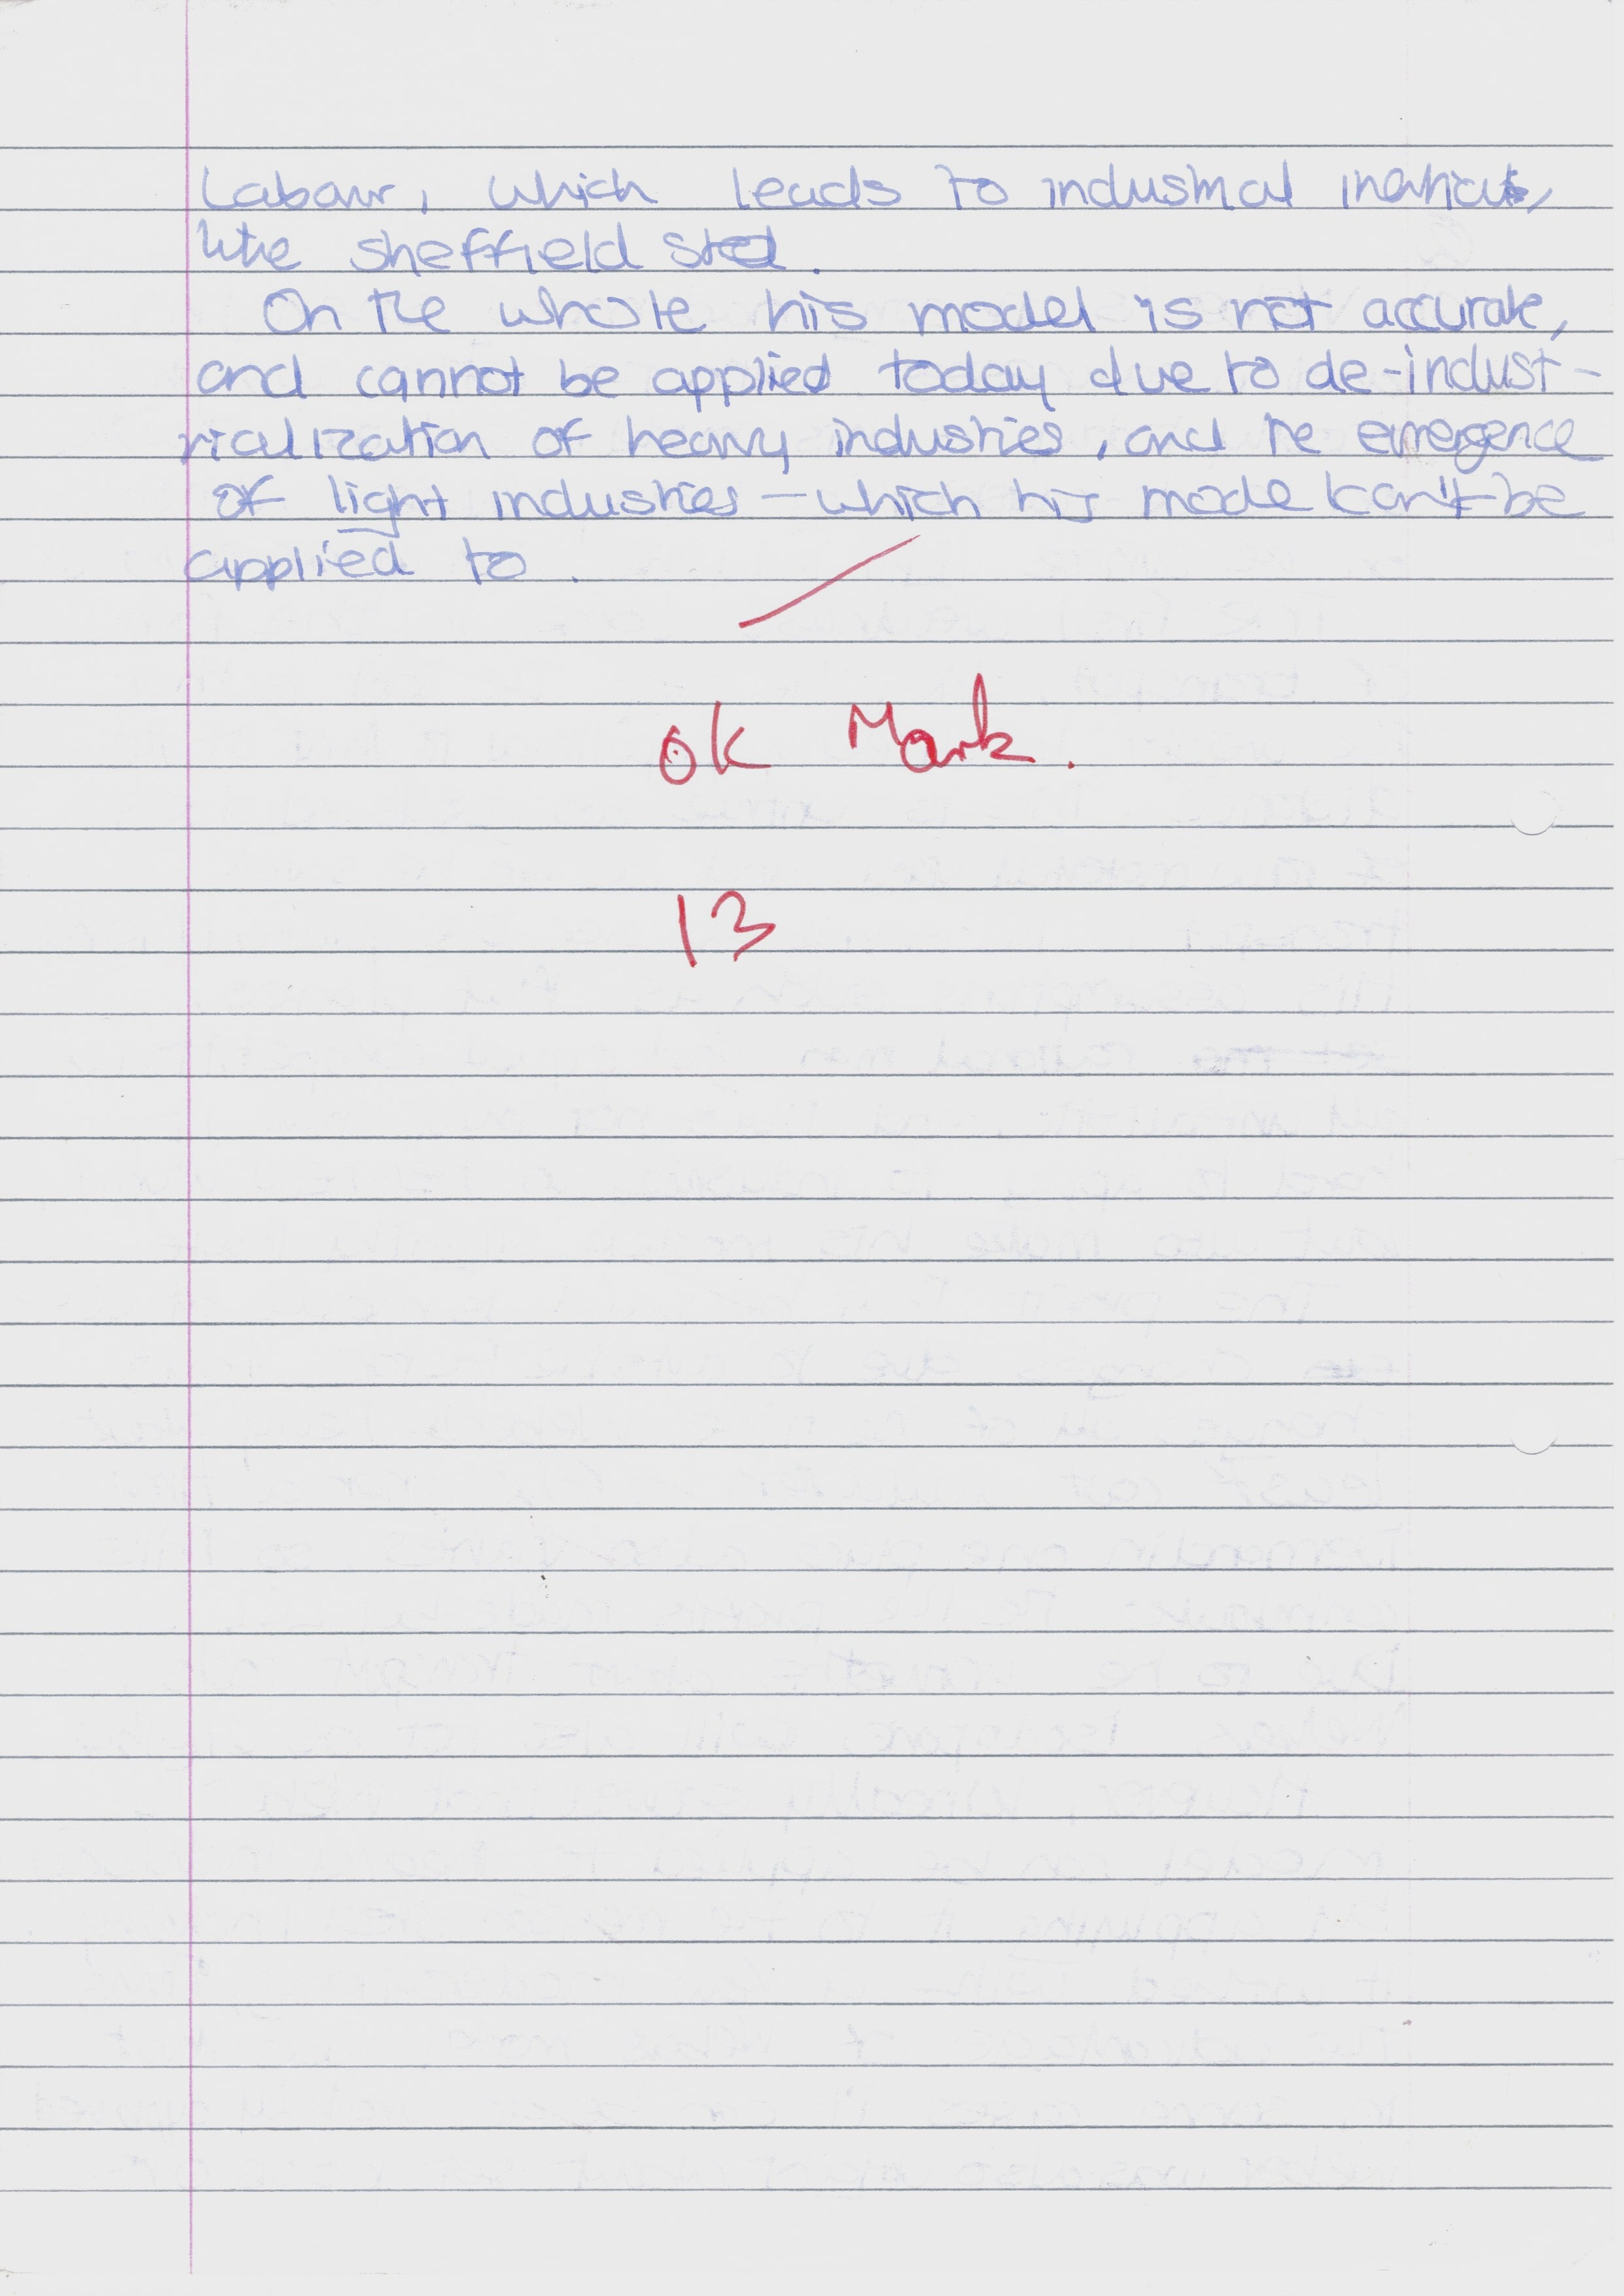 Labour, which leads to industrial inertia,
like sheffield steel.
On the whole his model is not accurate,
and cannot be applied today due to de-indust-
rialization of heavy industries, and the emergence
of light industries - which his model can't be
applied to.
OK Mark.
13